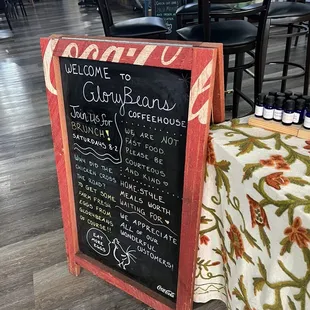 Coca-Cola
WELCOME TO
GloryBeans
COFFEEHOUSE
Join Us For
BRUNCH!
SATURDAYS 8-2
WHY DID THE
CHICKEN CROSS
THE ROAD?
TO GET SOME
FARM FRESH
EGGS FROM
GLORYBEANS
OF COURSE!!
EAT
MORE
EGGS
WE ARE NOT
FAST FOOD.
PLEASE BE
COURTEOUS
AND KIND.
HOME-STYLE
MEALS WORTH
WAITING FOR
WE APPRECIATE
ALL OF OUR
WONDERFUL
CUSTOMERS!
Coca-Cola